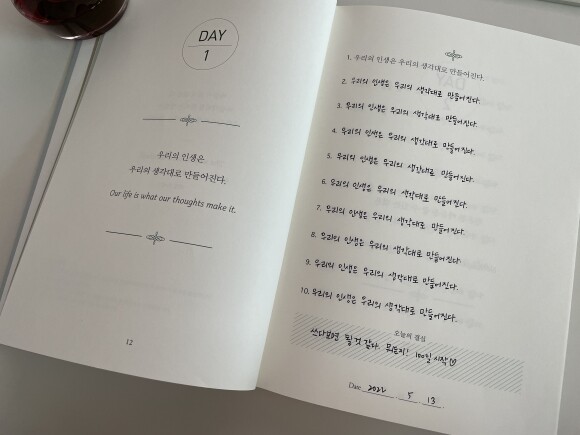 DAY
1
우리의 인생은
우리의 생각대로 만들어진다.
Our life is what our thoughts make it.
12
1. 우리의 인생은 우리의 생각대로 만들어진다.
2. 우리의 인생은 우리의 생각대로 만들어진다.
3. 우리의 인생은 우리의 생각대로 만들어진다.
4. 우리의 인생은 우리의 생각대로 만들어진다.
5. 우리의 인생은 우리의 생각대로 만들어진다.
6. 우리의 인생은 우리의 생각대로 만들어진다.
7. 우리의 인생은 우리의 생각대로 만들어진다.
8. 우리의 인생은 우리의 생각대로 만들어진다.
9. 우리의 인생은 우리의 생각대로 만들어진다.
10. 우리의 인생은 우리의 생각대로 만들어진다.
오늘의 결심
쓰다보면 될 것 같다. 뭐든지! 100일 시작
Date 2022 . 5 . 13 .